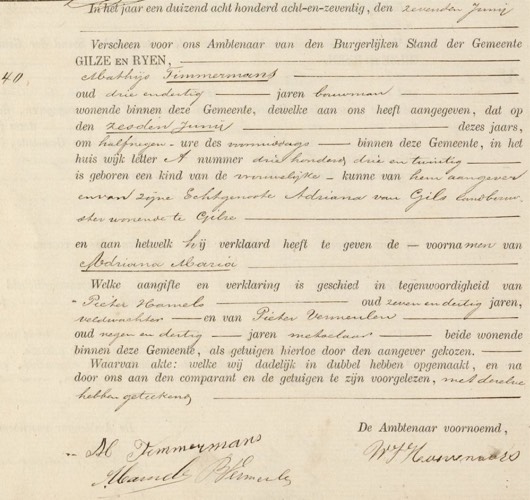 In het jaar een duizend acht honderd acht-en-zeventig, den zevenden Junij
Verscheen voor ons Ambtenaar van den Burgerlijken Stand der Gemeente
40. GILZE EN RYEN,
Mathijs Timmermans
oud drie endertig jaren bouwman
wonende binnen deze Gemeente, dewelke aan ons heeft aangegeven, dat op
den zesden Junij dezes jaars,
om halfnegen ure des voormiddags binnen deze Gemeente, in het
huis wijk letter A nummer driehonderd drie en twintig
is geboren een kind van de vrouwelijke kunne van hem aangever
en van zijne Echtgenoote Adriana van Gils landbouw-
ster wonende te Gilze
en aan hetwelk hij verklaard heeft te geven de voornamen van
Adriana Maria
Welke aangifte en verklaring is geschied in tegenwoordigheid van
Pieter Hamels oud zeven endertig jaren,
veldwachter en van Pieter Vermeulen
oud negen en dertig jaren metselaar beide wonende
binnen deze Gemeente, als getuigen hiertoe door den aangever gekozen.
Waarvan akte: welke wij dadelijk in dubbel hebben opgemaakt, en na
door ons aan den comparant en de getuigen te zijn voorgelezen, met dezelve
hebben geteekend
De Ambtenaar voornoemd,
M Timmermans
Hamels P Vermeulen